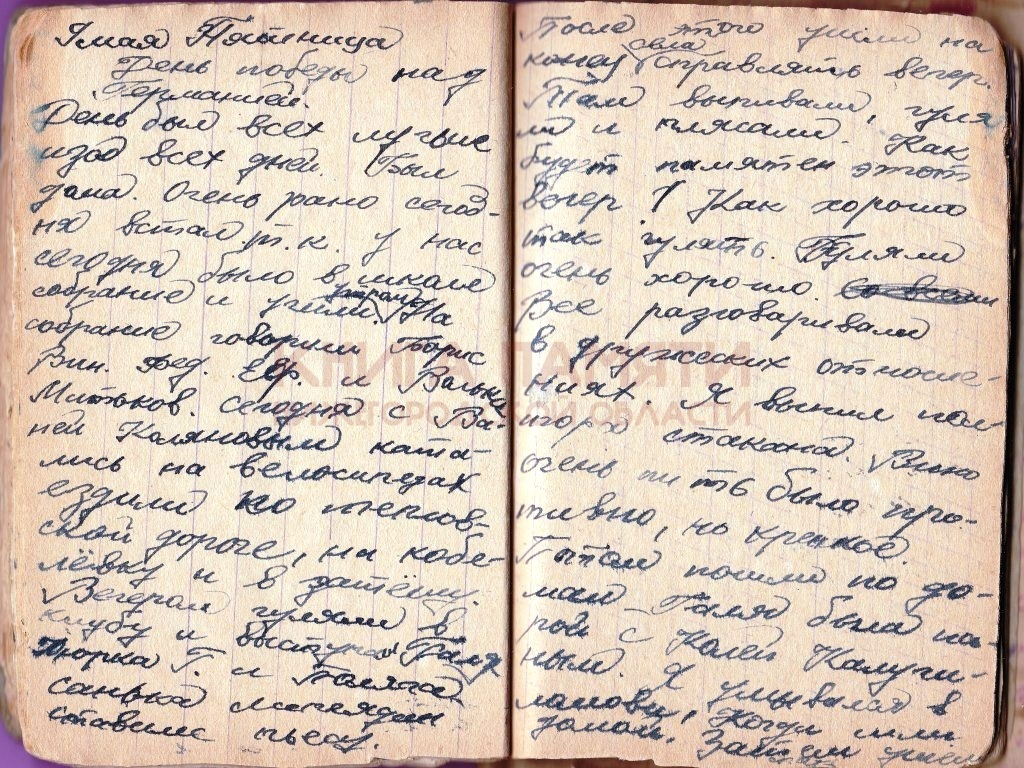 9 мая Пятница
День победы над
Германией.
День был всех лучьше
изо всех дней. Был
дома. Очень рано сегод-
ня встал, т.к. у нас
сегодня было в школе
собрание утром На
собрание говорили Борис
Вин. Фед. и
Митьков. сегодня с Ва-
ней Каляновым ката-
лись на велосипедах
ездили по тепловс-
кой дороге, на кобе-
лёвку и в
Вечером гуляли в
клубу и
Г. и
санька
ставили пьесу.
После этого ушли на
конец села справлять вечер.
Там выпивали, гуля
ли и плясали. Как
будет памятен этот
вечер! Как хорошо
так гулять. Гуляли
очень хорошо.
Все разговаривали
в дружеских отноше-
ниях. Я выпил пол-
тора стакана. Вино
очень пить было про-
тивно, но крепкое.
Потом пошли по до-
мам Галя была па-
рой с Колей Калуги-
ным. я умывался в
когда шли
домой. Затем
КНИГА ПАМЯТИ
НИЖЕГОРОДСКОЙ ОБЛАСТИ